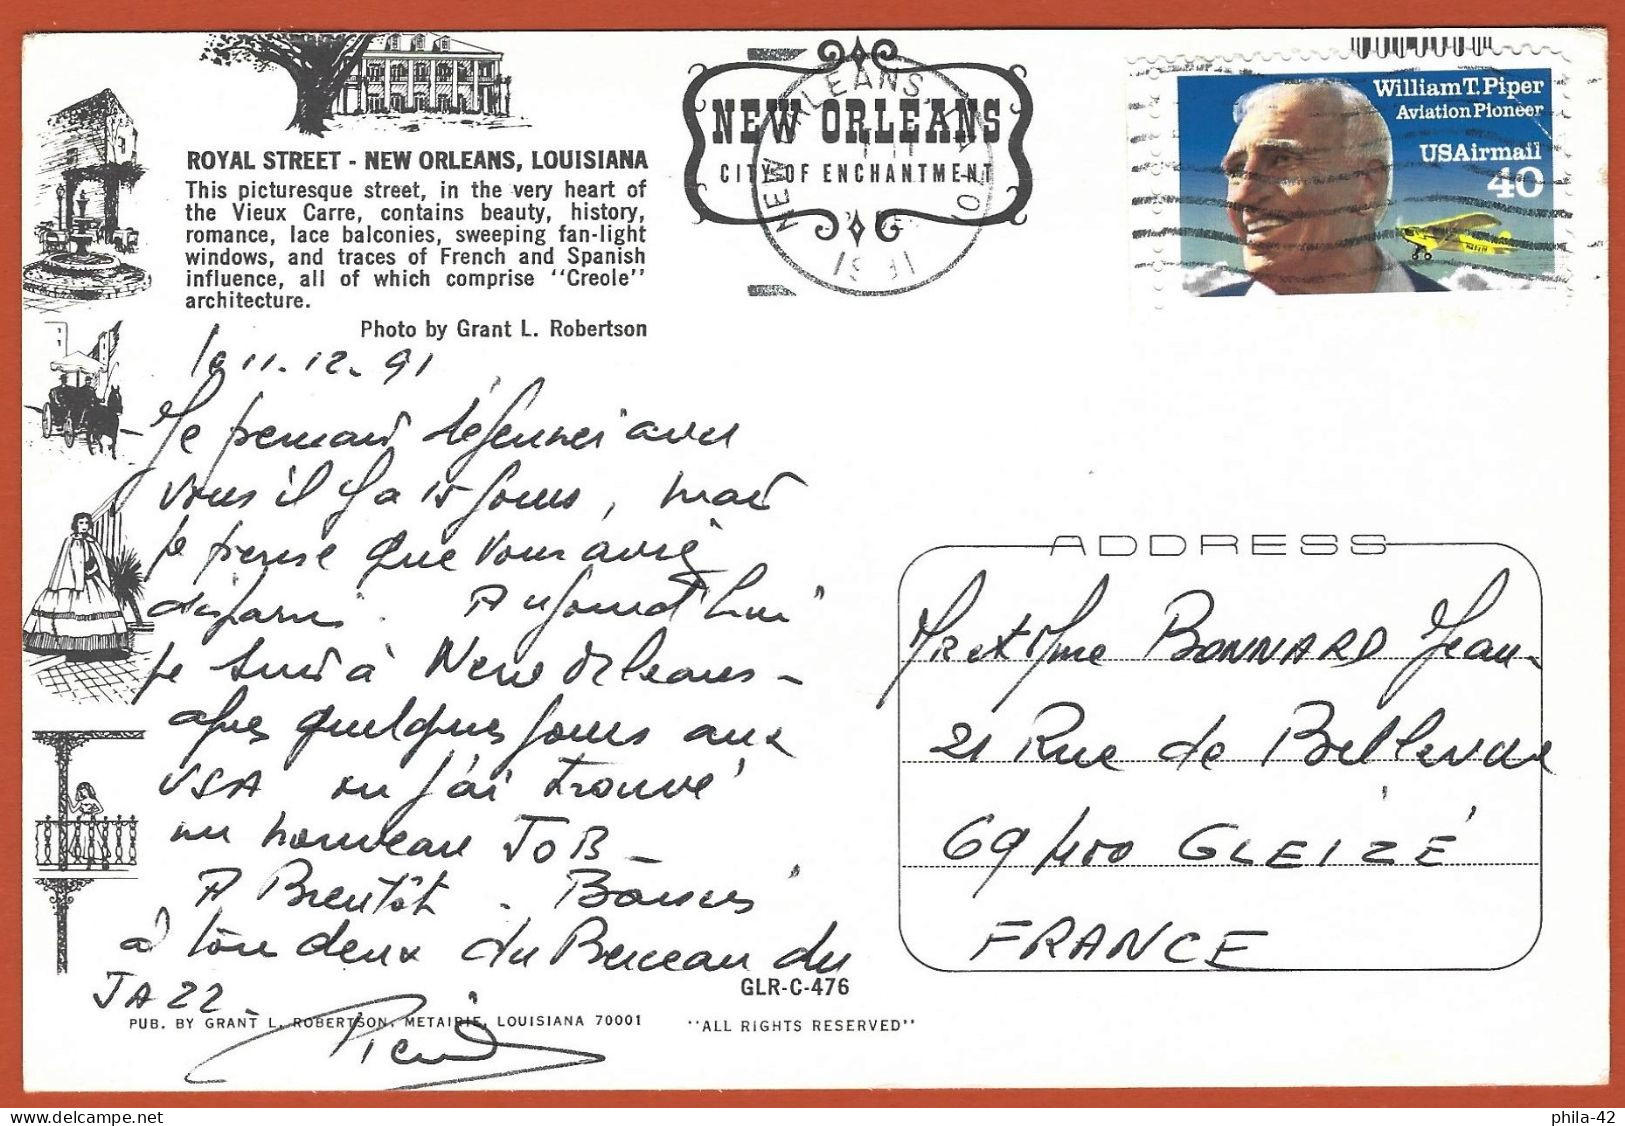 ROYAL STREET - NEW ORLEANS, LOUISIANA
This picturesque street, in the very heart of
the Vieux Carre, contains beauty, history,
romance, lace balconies, sweeping fan-light
windows, and traces of French and Spanish
influence, all of which comprise "Creole"
architecture.
Photo by Grant L. Robertson
NEW ORLEANS
CITY OF ENCHANTMENT
NEW ORLEANS, LA 701
1991
William T. Piper
Aviation Pioneer
USAirmail
40
le 11.12.91
Je pensais déjeuner avec
vous il y a 15 jours, mais
je pense que vous aviez
disparus. Aujourd'hui
je suis à New Orleans -
après quelques jours aux
USA où j'ai trouvé
un nouveau JOB -
A Bientôt. Baisers
à tous deux du Berceau du
JAZZ -
ADDRESS
Mr et Mme BONNARD Jean
21 Rue de Bellevue
69400 GLEIZÉ
FRANCE
GLR-C-476
PUB. BY GRANT L. ROBERTSON, METAIRIE, LOUISIANA 70001
"ALL RIGHTS RESERVED"
phila-42